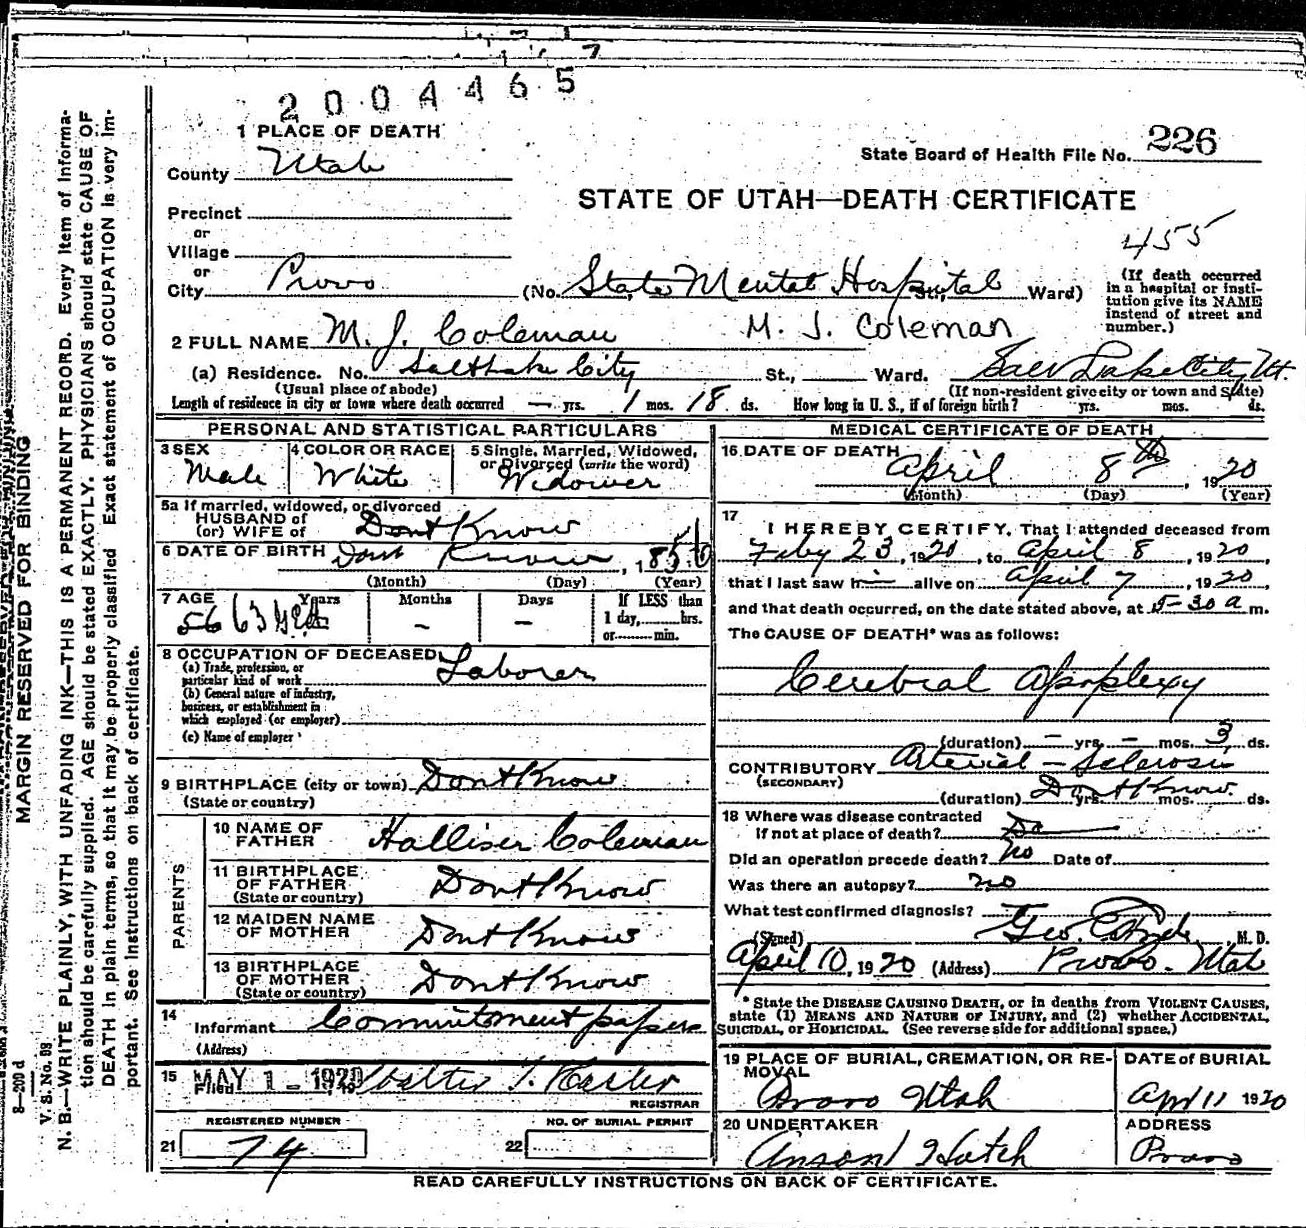 2004465
1 PLACE OF DEATH
State Board of Health File No. 226
County Utah
STATE OF UTAH—DEATH CERTIFICATE
Precinct
455
or
Village
or
City Provo (No. State Mental Hospital St., Ward)
(If death occurred
in a hospital or insti-
tution give its NAME
instead of street and
number.)
2 FULL NAME M. J. Coleman M. J. Coleman
(a) Residence. No. Salt Lake City St., Ward. Salt Lake City Ut.
(Usual place of abode) (If non-resident give city or town and State)
Length of residence in city or town where death occurred — yrs. 1 mos. 18 ds. How long in U. S., if of foreign birth? yrs. mos. ds.
PERSONAL AND STATISTICAL PARTICULARS
3 SEX Male
4 COLOR OR RACE White
5 Single, Married, Widowed,
or Divorced (write the word)
Widower
5a If married, widowed, or divorced
HUSBAND of
(or) WIFE of Dont Know
6 DATE OF BIRTH Dont Know, 1856
(Month) (Day) (Year)
7 AGE Years Months Days If LESS than
56 63 yrs – – 1 day, hrs.
or min.
8 OCCUPATION OF DECEASED
(a) Trade, profession, or
particular kind of work Laborer
(b) General nature of industry,
business, or establishment in
which employed (or employer)
(c) Name of employer
9 BIRTHPLACE (city or town) Dont Know
(State or country)
PARENTS
10 NAME OF
FATHER Hallisen Coleman
11 BIRTHPLACE
OF FATHER Dont Know
(State or country)
12 MAIDEN NAME
OF MOTHER Dont Know
13 BIRTHPLACE
OF MOTHER Dont Know
(State or country)
14
Informant Commitment papers
(Address)
15 Filed MAY 1 - 1920 Walter T. Hasler
REGISTRAR
REGISTERED NUMBER NO. OF BURIAL PERMIT
21 74 22
MEDICAL CERTIFICATE OF DEATH
16 DATE OF DEATH April 8th, 1920
(Month) (Day) (Year)
17
I HEREBY CERTIFY, That I attended deceased from
Feby 23, 1920, to April 8, 1920,
that I last saw h— alive on April 7, 1920,
and that death occurred, on the date stated above, at 5-30 a m.
The CAUSE OF DEATH* was as follows:
Cerebral Apoplexy
(duration) – yrs. – mos. 3 ds.
CONTRIBUTORY Arterial – Sclerosis
(SECONDARY)
(duration) Dont Know yrs. mos. ds.
18 Where was disease contracted
if not at place of death?
Did an operation precede death? No Date of
Was there an autopsy? no
What test confirmed diagnosis?
(Signed) Geo. M. D.
April 10, 1920 (Address) Provo. Utah
* State the DISEASE CAUSING DEATH, or in deaths from VIOLENT CAUSES,
state (1) MEANS AND NATURE OF INJURY, and (2) whether ACCIDENTAL,
SUICIDAL, or HOMICIDAL. (See reverse side for additional space.)
19 PLACE OF BURIAL, CREMATION, OR RE-
MOVAL
Provo Utah
DATE of BURIAL
Apr 11 1920
20 UNDERTAKER
Anson Hatch
ADDRESS
Provo
READ CAREFULLY INSTRUCTIONS ON BACK OF CERTIFICATE.
MARGIN RESERVED FOR BINDING
N. B.—WRITE PLAINLY, WITH UNFADING INK—THIS IS A PERMANENT RECORD. Every item of informa-
tion should be carefully supplied. AGE should be stated EXACTLY. PHYSICIANS should state CAUSE OF
DEATH in plain terms, so that it may be properly classified. Exact statement of OCCUPATION is very im-
portant. See instructions on back of certificate.
V. S. No. 98